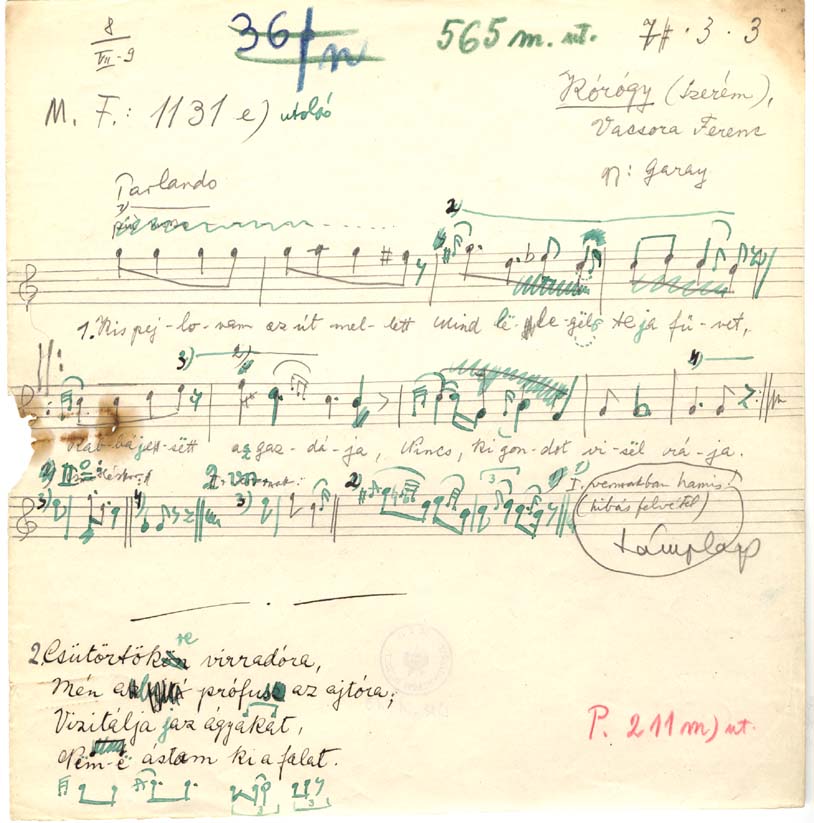 8
VII-9
36/n
565 m. ut.
7# · 3 · 3
M. F.: 1131 e) utolsó
Kórógy (Szerém),
Vacsora Ferenc
gy: Garay
Parlando
2)
2)
1. Kis pej-lo-vam az út mel-lett Mind lë- -gël te ja fü-vet,
3)
2)
4)
Rab-bá jen-sëtt az gaz-dá-ja, Nincs, ki gon-dot vi-sël rá-ja.
3)
4)
3)
2)
I. versszakban hamis!
(hibás felvétel)
támlap
2. Csütörtökre virradóra,
Mén a prófusz az ajtóra;
Vizitálja jaz ágyakat,
Nëm-ë ástam ki a falat.
3
3
P. 211 m) ut.